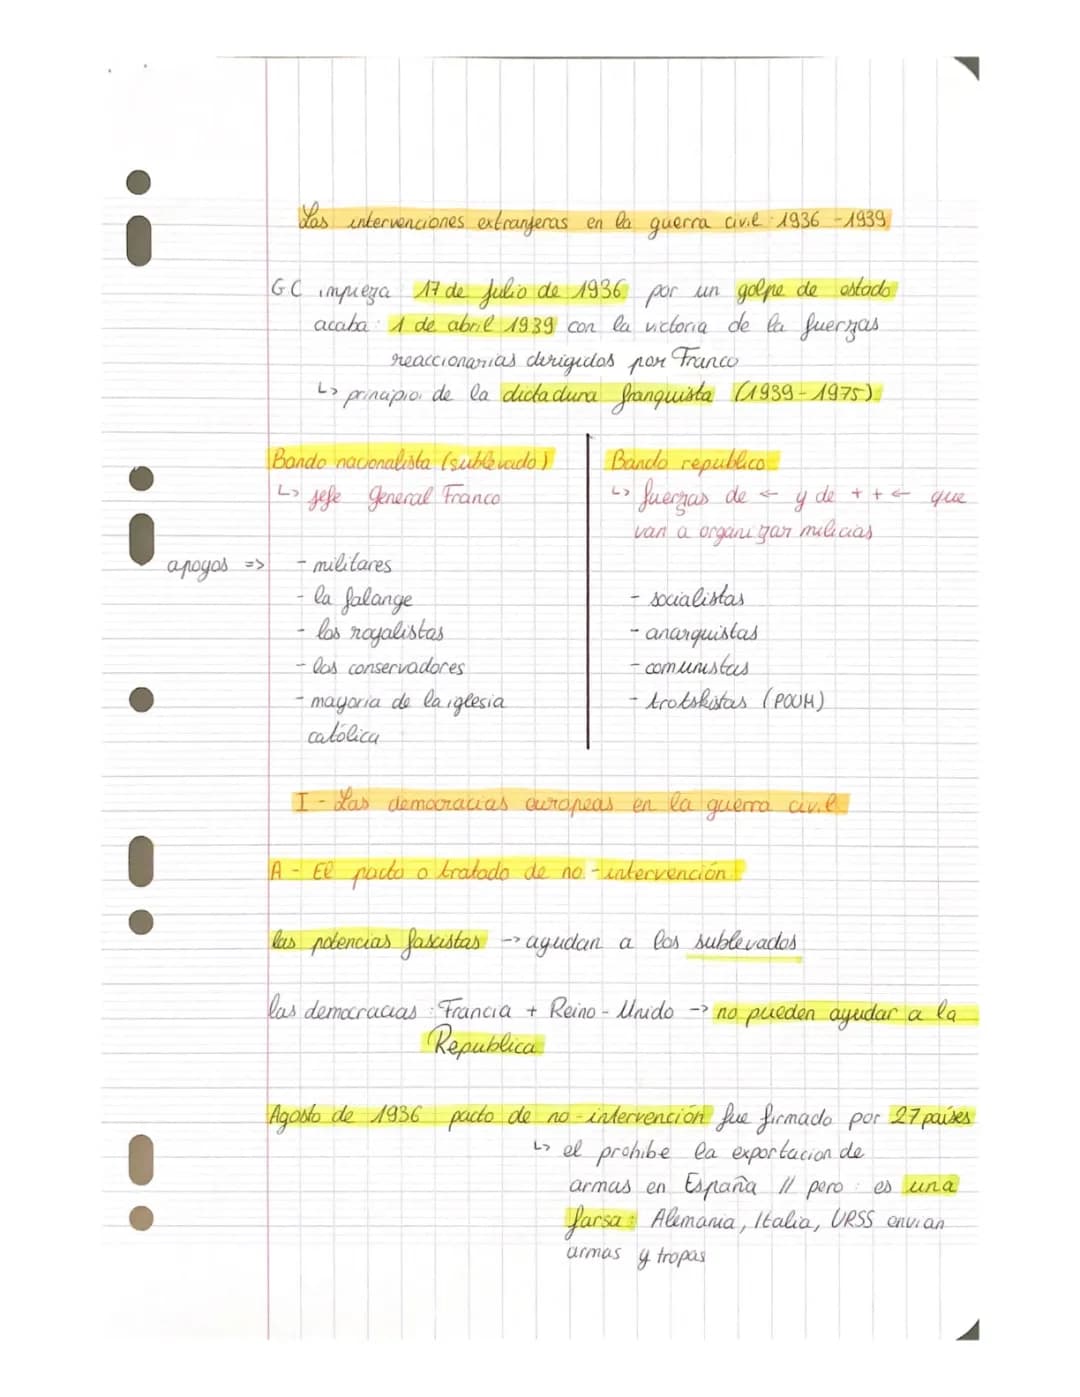 Las intervenciones extranjeras en la guerra civil : 1936 - 1939
GC impieza 17 de julio de 1936 por un golpe de estado
acaba : 1 de abril 1939 con la victoria de la fuerzas
reaccionarias dirigidas por Franco
↳ principio de la dictadura franquista (1939-1975)
Bando nacionalista (sublevado)
↳ jefe General Franco
apoyos => - militares
- la falange
- los royalistas
- los conservadores
- mayoria de la iglesia
católica
Bando republico
↳ fuerzas de ← y de ++← que
van a organizar milicias
- socialistas
- anarquistas
- comunistas
- trotskistas (POUM)
I - Las democracias europeas en la guerra civil
A - El pacto o tratado de no-intervención
las potencias fascistas -> ayudan a los sublevados
las democracias : Francia + Reino-Unido -> no pueden ayudar a la
Republica
Agosto de 1936 pacto de no-intervención fue firmado por 27 países
↳ el prohibe la exportacion de
armas en España // pero : es una
farsa : Alemania, Italia, URSS envian
armas y tropas